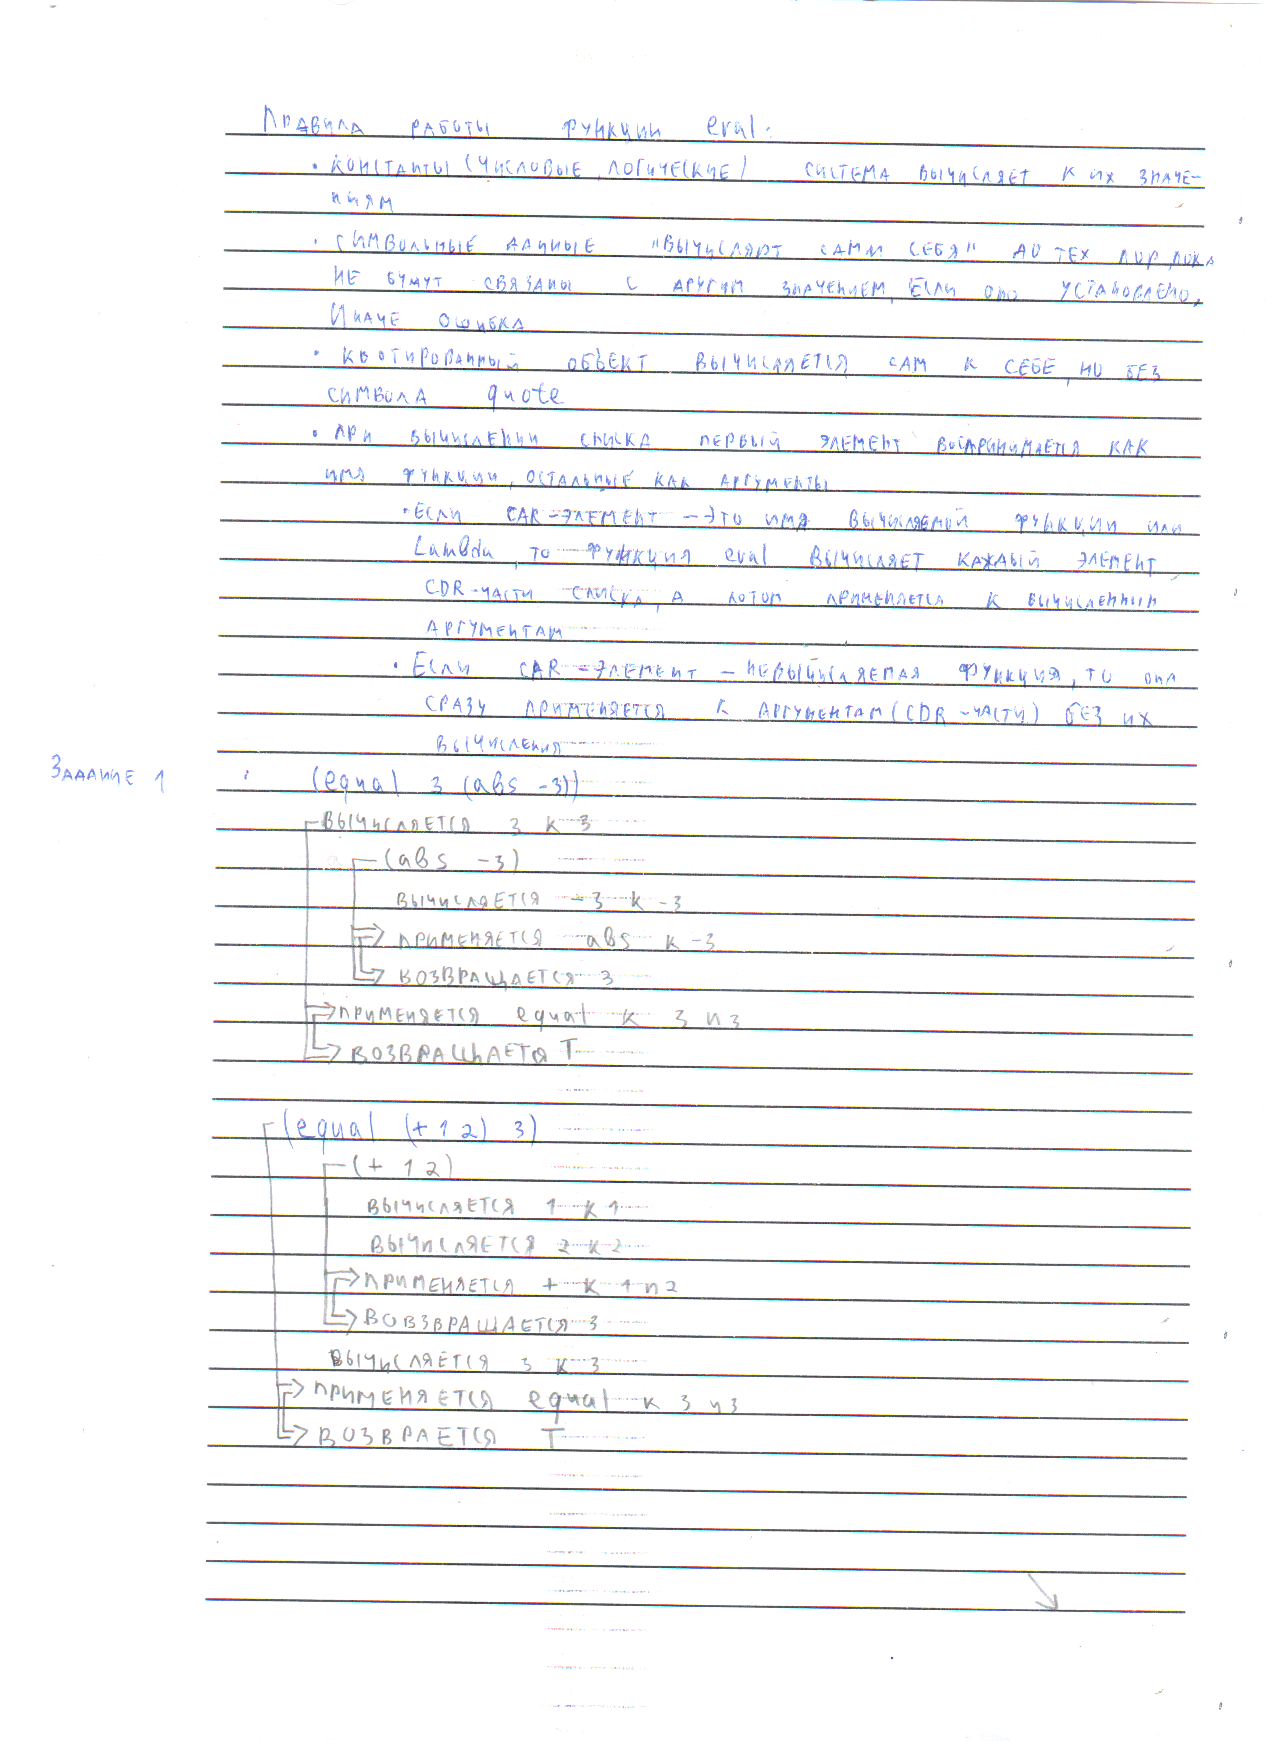 Правила работы функции eval:
• константы (числовые, логические) система вычисляет к их значе-
ниям
• символьные данные "вычисляют сами себя" до тех пор, пока
не будут связаны с другим значением, если оно установлено,
Иначе ошибка
• квотированный объект вычисляется сам к себе, но без
символа quote
• при вычислении списка первый элемент воспринимается как
имя функции, остальные как аргументы
• Если CAR-элемент – это имя вычисляемой функции или
Lambda, то функция eval вычисляет каждый элемент
CDR-части списка, а потом применяется к вычисленным
аргументам
• Если CAR-элемент – невычисляемая функция, то она
сразу применяется к аргументам (CDR-части) без их
вычисления
Задание 1 (equal 3 (abs -3))
вычисляется 3 к 3
(abs -3)
вычисляется -3 к -3
применяется abs к -3
возвращается 3
применяется equal к 3 и 3
возвращается T
(equal (+ 1 2) 3)
(+ 1 2)
вычисляется 1 к 1
вычисляется 2 к 2
применяется + к 1 и 2
вовзвращается 3
вычисляется 3 к 3
применяется equal к 3 и 3
возврается T